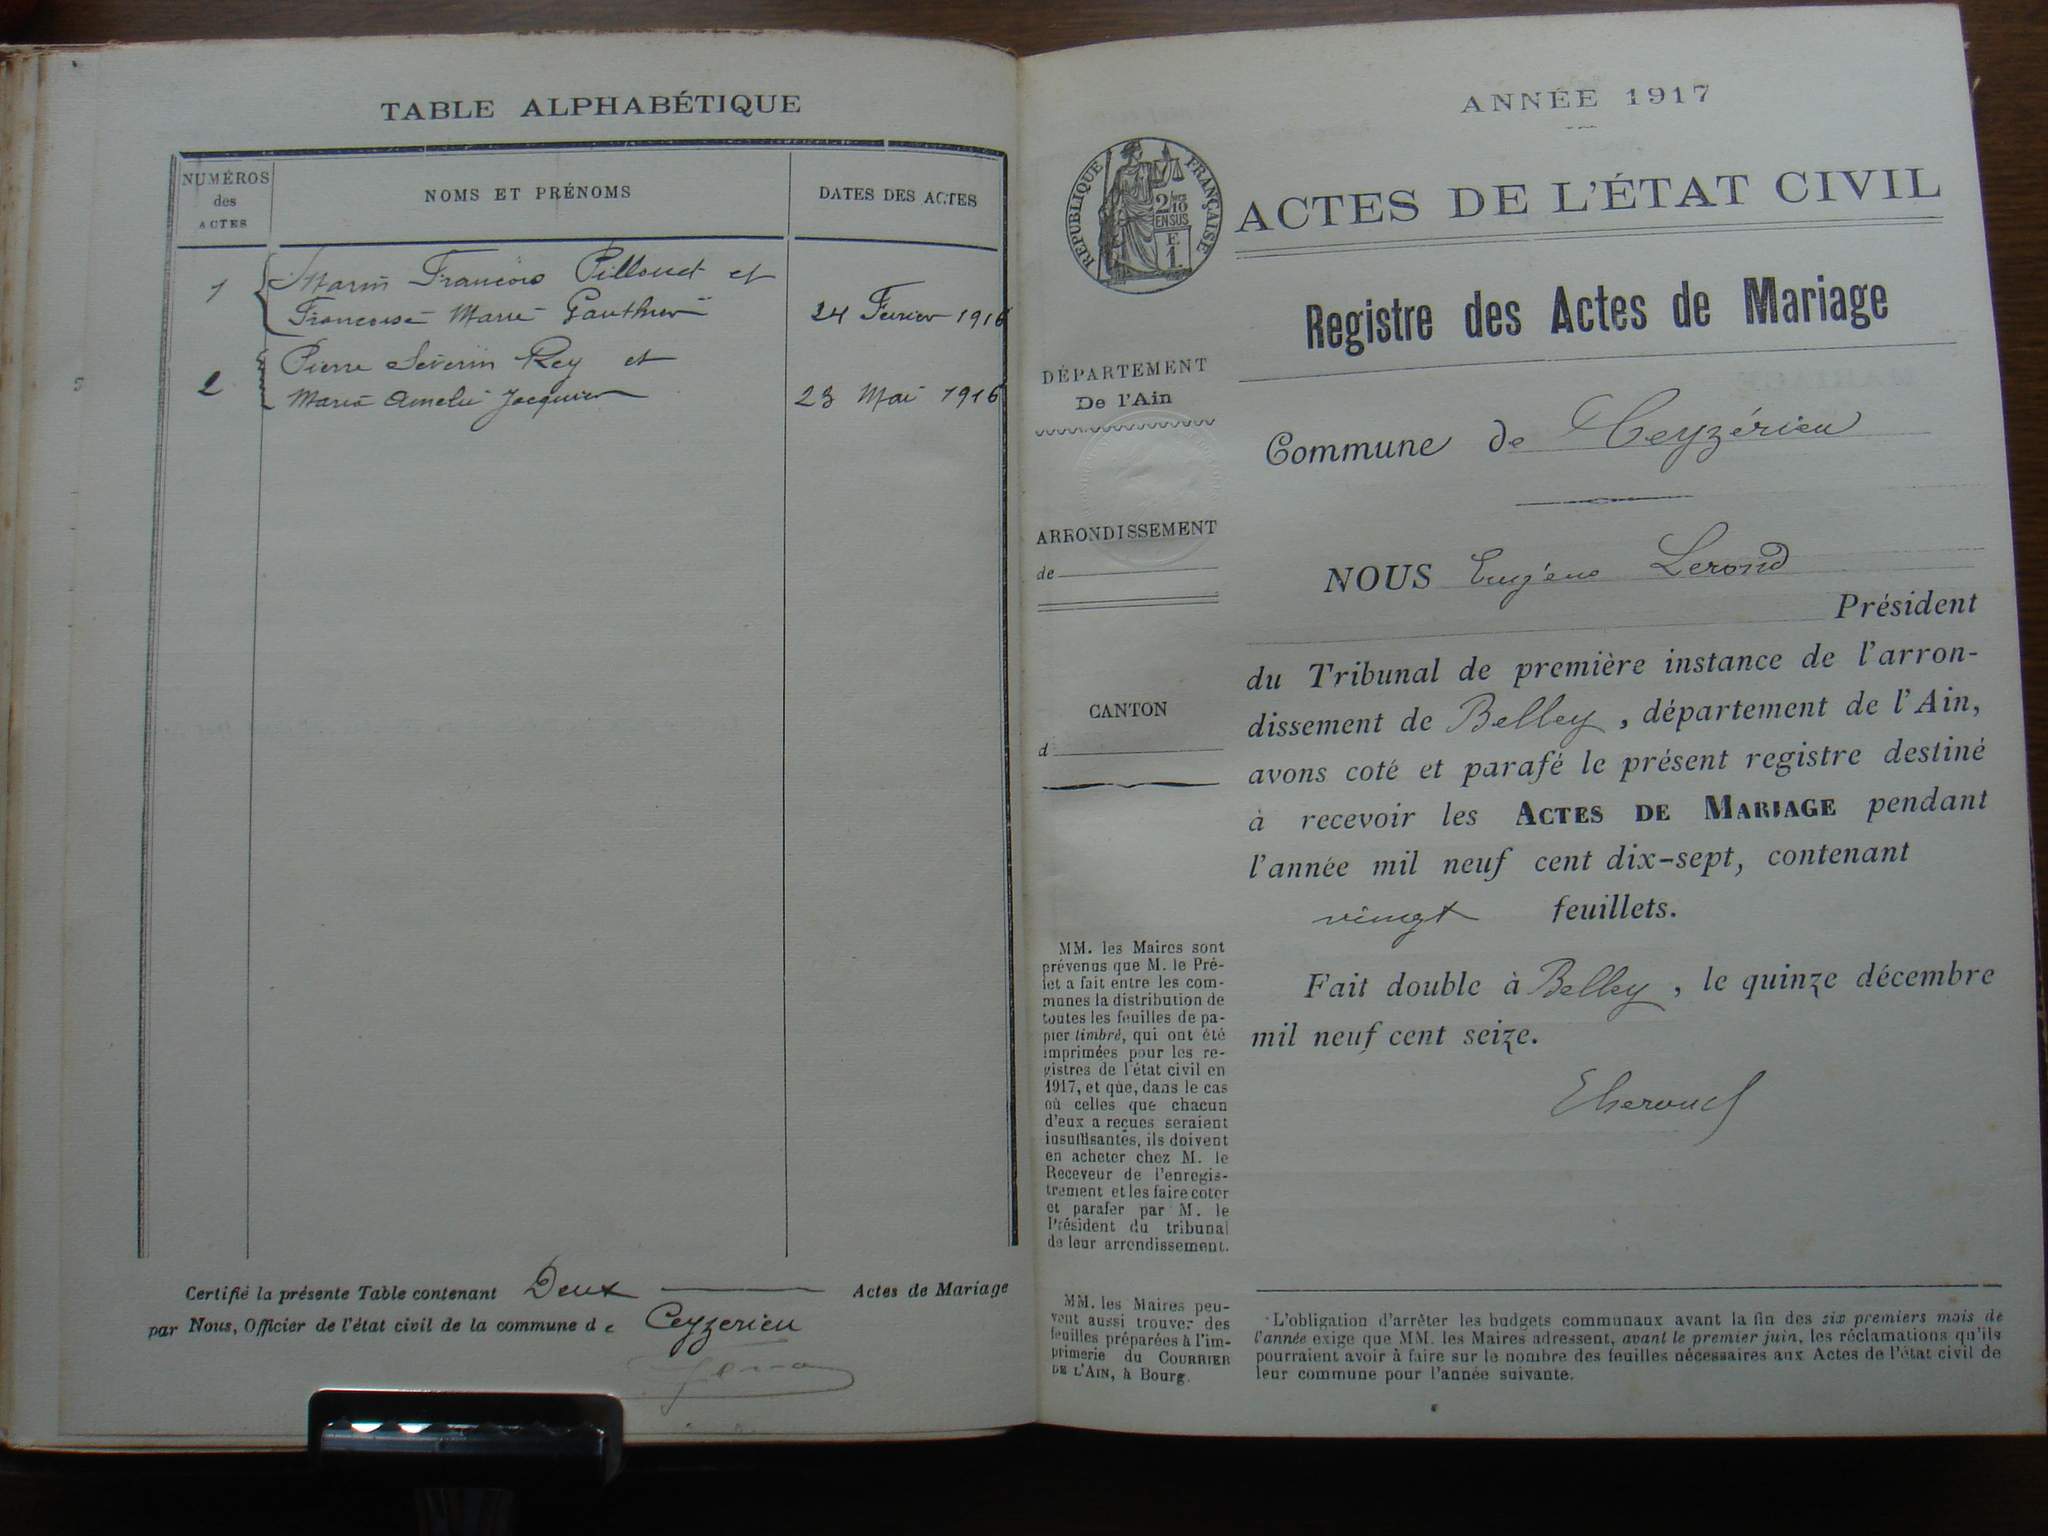 TABLE ALPHABÉTIQUE
NUMÉROS
des
ACTES
NOMS ET PRÉNOMS
DATES DES ACTES
1
Marin François Pillouet et
Françoise Marie Gauthier
24 Fevrier 1916
2
Pierre Séverin Rey et
Maria Amelie Jacquier
23 Mai 1916
Certifié la présente Table contenant Deux Actes de Mariage
par Nous, Officier de l'état civil de la commune de Ceyzerieu
ANNÉE 1917
RÉPUBLIQUE FRANÇAISE
2/10
EN SUS
E
1.
ACTES DE L'ÉTAT CIVIL
Registre des Actes de Mariage
DÉPARTEMENT
De l'Ain
ARRONDISSEMENT
de
CANTON
d
Commune de Ceyzérieu
NOUS Eugène Lerond
Président
du Tribunal de première instance de l'arron-
dissement de Belley, département de l'Ain,
avons coté et parafé le présent registre destiné
à recevoir les ACTES DE MARIAGE pendant
l'année mil neuf cent dix-sept, contenant
vingt feuillets.
Fait double à Belley, le quinze décembre
mil neuf cent seize.
MM. les Maires sont
prévenus que M. le Pré-
fet a fait entre les com-
munes la distribution de
toutes les feuilles de pa-
pier timbré, qui ont été
imprimées pour les re-
gistres de l'état civil en
1917, et que, dans le cas
où celles que chacun
d'eux a reçues seraient
insuffisantes, ils doivent
en acheter chez M. le
Receveur de l'enregis-
trement et les faire coter
et parafer par M. le
Président du tribunal
de leur arrondissement.
MM. les Maires peu-
vent aussi trouver des
feuilles préparées à l'im-
primerie du COURRIER
DE L'AIN, à Bourg.
L'obligation d'arrêter les budgets communaux avant la fin des six premiers mois de
l'année exige que MM. les Maires adressent, avant le premier juin, les réclamations qu'ils
pourraient avoir à faire sur le nombre des feuilles nécessaires aux Actes de l'état civil de
leur commune pour l'année suivante.